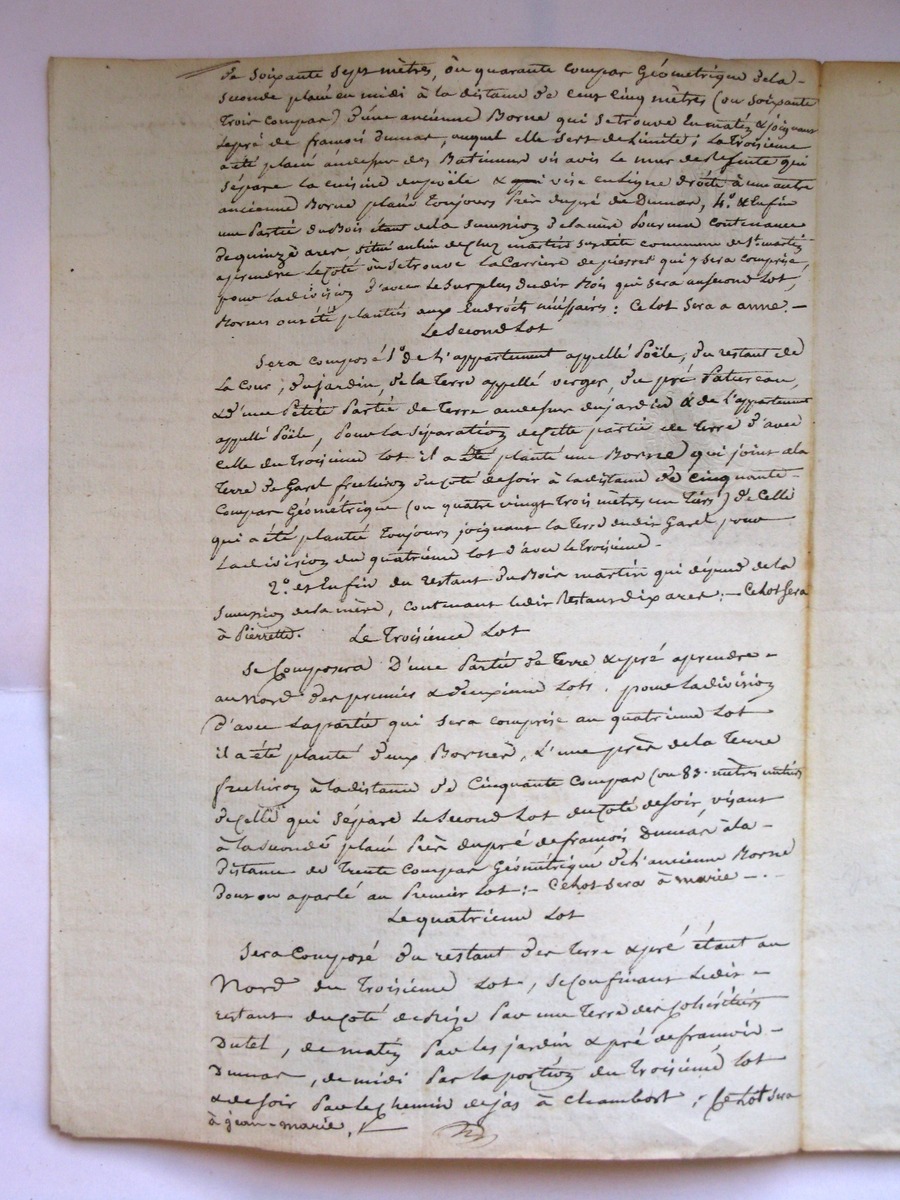 de soixante sept mètres, ou quarante compas Géometrique de la
seconde placée en midi à la distance de cent cinq mètres (ou soixante
trois compas) d'une ancienne Borne qui se trouve En matin & joignant
le pré de françois Dumas, auquel elle sert de Limite; la Troisieme
a été placée audessus des Batimens vis avis le mur de Refente qui
sépare la cuisine du poële & vise en ligne droite à une autre
ancienne Borne placée toujours Près du pré de Dumas, 4.º & Enfin
une Partie du Bois étant de la succession de la mère pour une contenance
de quinze ares situé au lieu de chez martin susdite commune de St. martin
aprendre le côté où se trouve la Carriere de pierres qui y sera comprise,
pour la division d'avec le surplus dudit Bois qui sera au second Lot,
Bornes ont été plantées aux Endroits nécessaires: Ce lot sera a anne. —
Le Second Lot
Sera composé 1.º de L'appartement appellé Poële, du restant de
la Cour, du jardin, de la terre appellé verger, du pré Patureau,
& d'une Petite Partie de Terre audessus du jardin & de l'appartement
appellé Poële, Pour la séparation de cette partie de Terre d'avec
celle du troisieme lot il a été planté une Borne qui joint a la
Terre de Garel du coté de soir à la distance de cinquante
Compas Géométrique (ou quatre vingt trois mètres un tiers) de Celle
qui a été plantée Toujours joignant la terre dudit Garel pour
La division du quatrieme lot d'avec le troisieme -
2.º et Enfin du restant du Bois martin qui dépend de la
succession de la mère, contenant ledit Restant dix ares: — Ce lot Sera
à Pierrette. Le Troisieme Lot
Se Composera D'une Partie de Terre & pré aprendre
au nord des premier & deuxieme Lots. pour la division
d'avec la partie qui sera comprise au quatrieme Lot
il a été planté deux Bornes, L'une près de la Terre
à la distance de Cinquante Compas (ou 83. mètres
de celle qui sépare le second Lot du coté de soir, visant
à la seconde placée Près du pré de françois Dumas à la
Distance de Trente Compas Géometrique de l'ancienne Borne
Dont on a parlé au Premier Lot: — Ce Lot sera à marie —
Le quatrieme Lot
Sera Composé du restant des Terre & pré étant au
Nord du Troisieme Lot, se Confinant Ledit
restant du coté de Bize Par une Terre des
Dutel, de matin Par les jardin & pré de francois
Dumas, de midi Par la portion du troisieme Lot
& de soir Par le chemin de jas à Chambost; Ce Lot sera
à jean-marie.